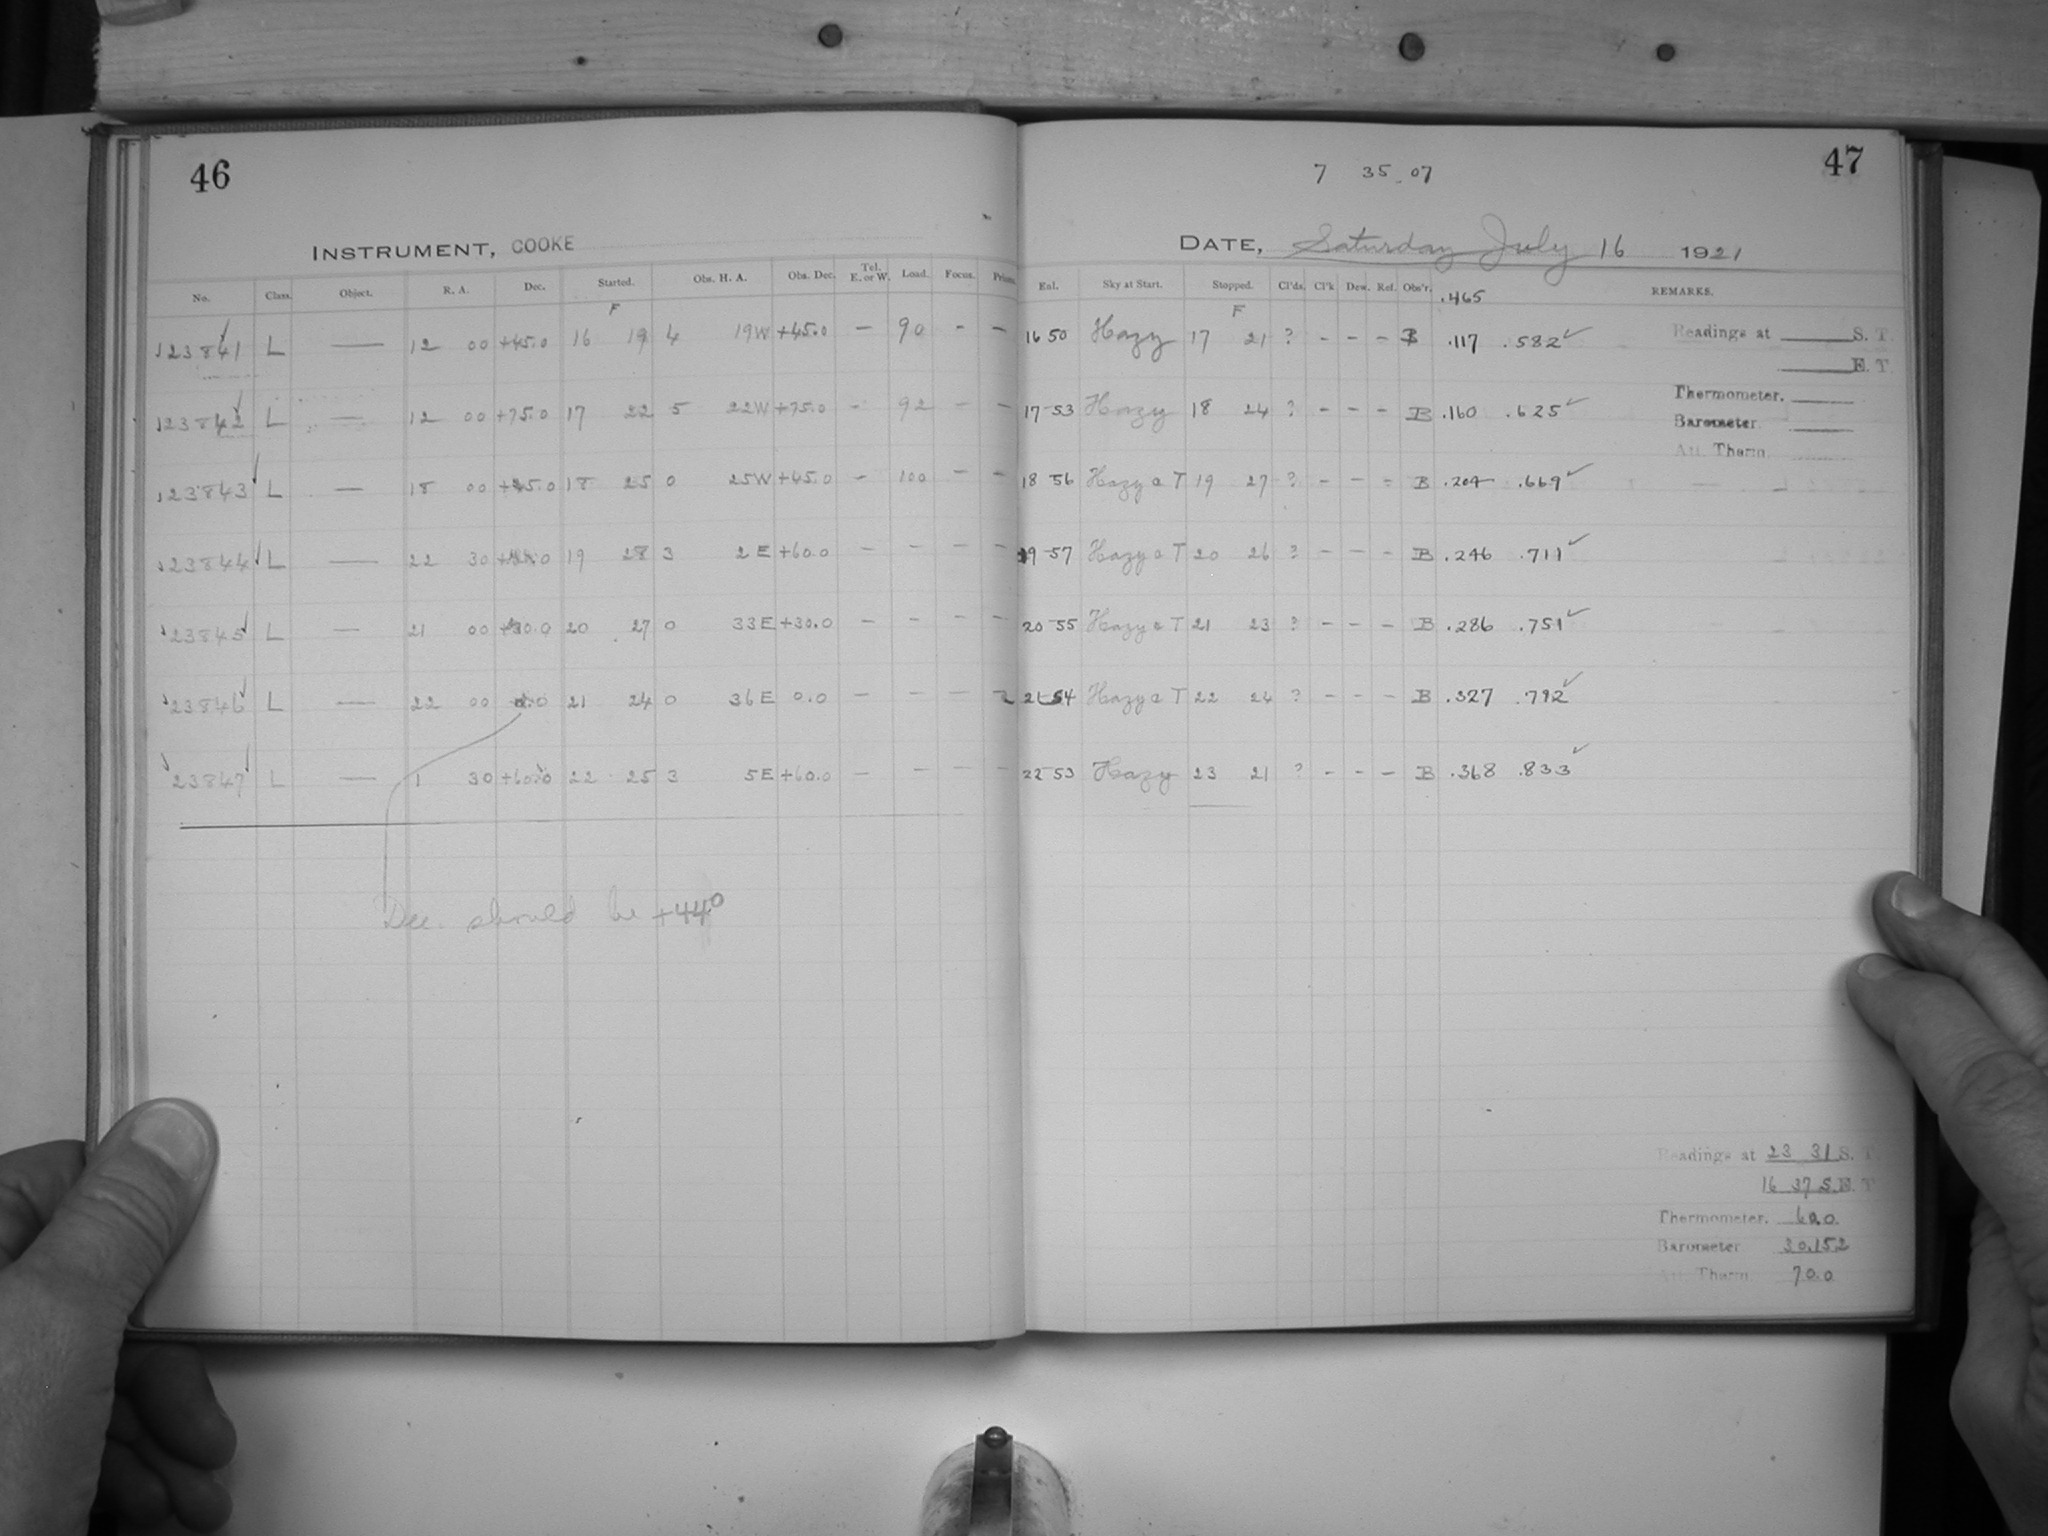 46
INSTRUMENT, COOKE
No. Class. Object. R. A. Dec. Started. Obs. H. A. Obs. Dec. Tel. E. or W. Load. Focus.
F
23841 L — 12 00 +45.0 16 19 4 19W +45.0 — 90 - —
23842 L — 12 00 +75.0 17 22 5 22W +75.0 - 92 — —
23843 L — 18 00 +45.0 18 25 0 25W +45.0 — 100 — —
23844 L — 22 30 19 28 3 2 E +60.0 — — — —
23845 L — 21 00 +30.0 20 27 0 33E +30.0 — — — —
23846 L — 22 00 21 24 0 36E 0.0 — — —
23847 L — 1 30 +60.0 22 25 3 5E +60.0 — — — —
Dec. should be +44°
47
7 35 07
DATE, Saturday July 16 1921
Exl. Sky at Start. Stopped. Cl'ds. Cl'k Dew. Ref. Obs'r. .465 REMARKS.
F
16 50 Hazy 17 21 ? - - - B .117 .582 ✓
17 53 Hazy 18 24 ? - - - B .160 .625 ✓
18 56 Hazy c T 19 27 ? - - - B .204 .669 ✓
19 57 Hazy c T 20 26 ? - - - B .246 .711 ✓
20 55 Hazy c T 21 23 ? - - - B .286 .751 ✓
21 54 Hazy c T 22 24 ? - - - B .327 .792 ✓
22 53 Hazy 23 21 ? - - - B .368 .833 ✓
Readings at S. T.
E. T.
Thermometer.
Barometer
Att. Therm.
Readings at 23 31 S. T.
16 37 S.E. T
Thermometer.
Barometer 30.152
Att. Therm 70.0